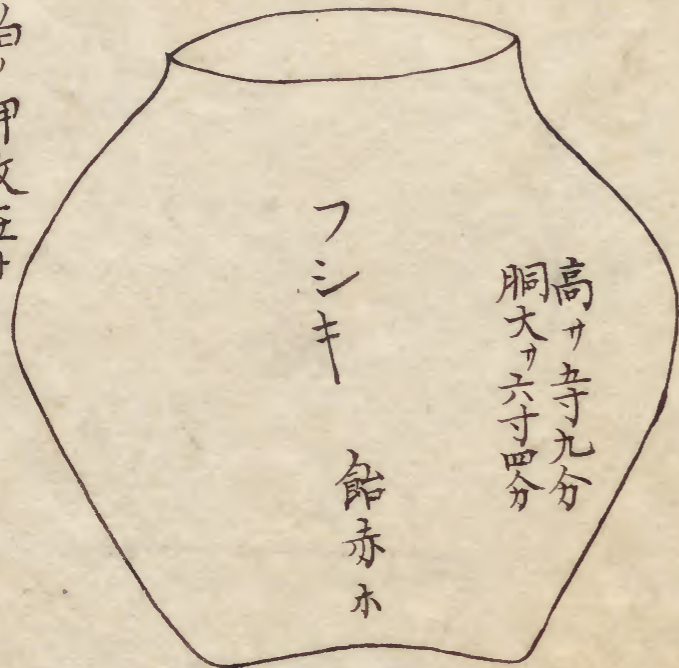 高サ五寸九分
胴大サ六寸四分
フシキ
飴赤ホ